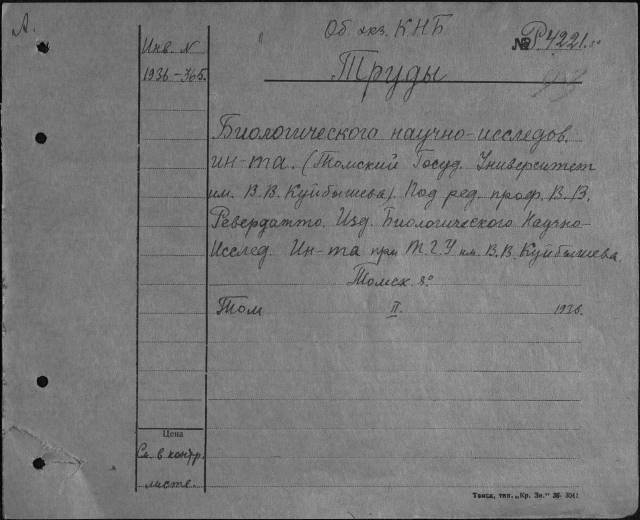 А.
Об экз. КНБ
Инв. N
1936-365.
№ Р 4221.8°
Труды
Биологического научно-исследов.
ин-та. (Томский Госуд. Университет
им. В.В. Куйбышева). Под ред. проф. В.В.
Ревердатто. Изд. Биологического Научно-
Исслед. Ин-та при Т.Г.У им. В.В. Куйбышева.
Томск 8°
Том II. 1936.
Цена
См. в контр.
листе.
Томск, тип. „Кр. Зн."